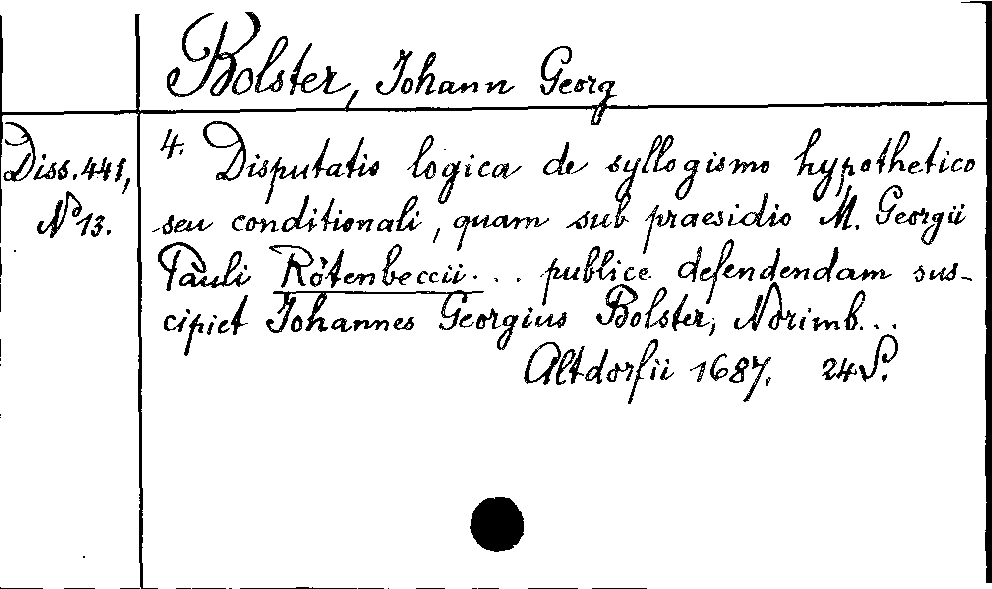 Bolster, Johann Georg
Diss. 441,
No 13.
4. Disputatio logica de syllogismo hypothetico
seu conditionali, quam sub praesidio M. Georgii
Pauli Rötenbeccii... publice defendendam sus-
cipiet Johannes Georgius Bolster, Norimb...
Altdorfii 1687. 24 S.